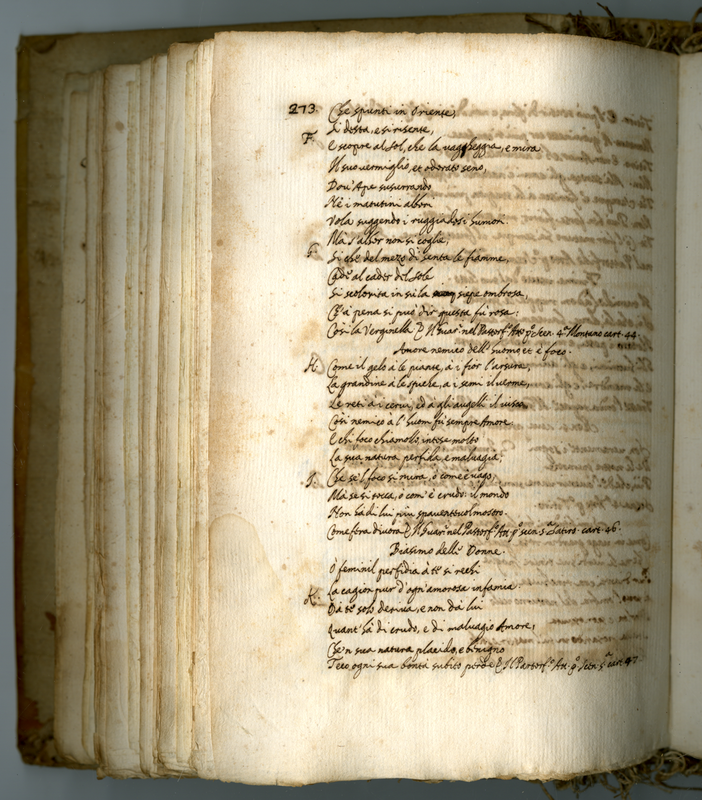 273. Che spunti in Oriente,
F. Si desta, e si risente,
E scopre al Sol, che la vagheggia, e mira
Il suo vermiglio, et odorato seno,
Dou' Ape susurrando
Nè i matutini albori
Vola suggendo i ruggiadosi humori.
Mà s'allhor non si coglie,
G. Si che del mezo dì senta le fiamme,
Cade al cader del Sole
Si scolorita in sù la siepe ombrosa,
Ch' à pena si può dir questa fù rosa.
Così la Verginella Il Guar. nel Pastor f. Att. p.° Scen. 4.ª Montano cart. 44.
Amore nemico dell' huomo, et è foco.
H. Come il gelo à le piante, à i fior l'arsura,
La grandine à le spiche, à i semi il verme,
Le reti à i cerui, ed à gli augelli il visco,
Così nemico à l' huom fù sempre Amore.
E chi foco chiamollo, intese molto
La sua natura perfida, e maluagia;
I. Che se 'l foco si mira, ò come è vago,
Mà se si tocca, ò com' è crudo: il mondo
Non hà di lui più spauenteuol mostro.
Come fera diuora Il Guar. nel Pastor f. Att. p.° scen. 5.ª Satiro cart. 46.
Biasimo delle Donne.
O feminil perfidia à te si rechi
La cagion pur d'ogn' amorosa infamia.
K. Da te solo deriua, e non dà lui
Quant' hà di crudo, e di maluagio Amore;
Che 'n sua natura placido, e benigno
Teco ogni sua bontà subito perde Il Pastor f. Att. p.° Scen. 5.ª cart. 47.